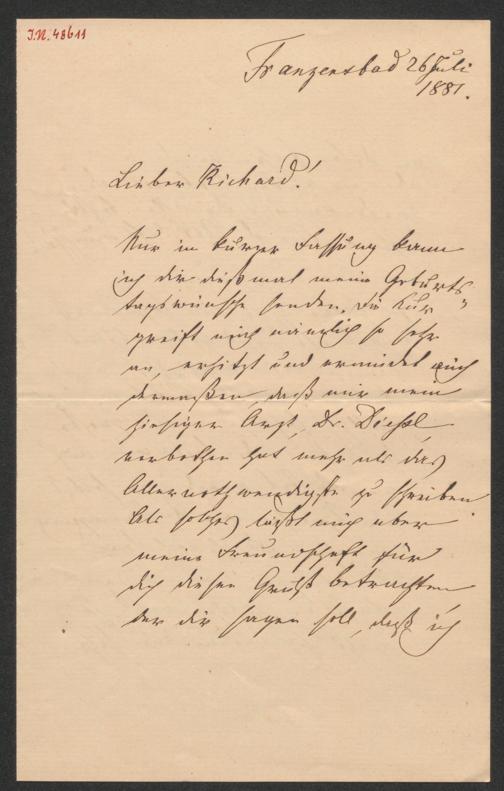 I.N. 48611
Franzensbad 26 Juli
1881.
Lieber Richard!
Nur in kurzer Fassung kann
ich dir dießmal meine Geburts-
tagswünsche senden. Die Kur
greift mich nämlich so sehr
an, erhitzt und ermüdet mich
dermaßen, daß mir mein
hiesiger Arzt, Dr. Diessl,
verbothen hat mehr als das
Allernothwendigste zu schreiben.
Als solches läßt mich aber
meine Freundschaft für
dich diesen Gruß betrachten
der dir sagen soll, daß ich